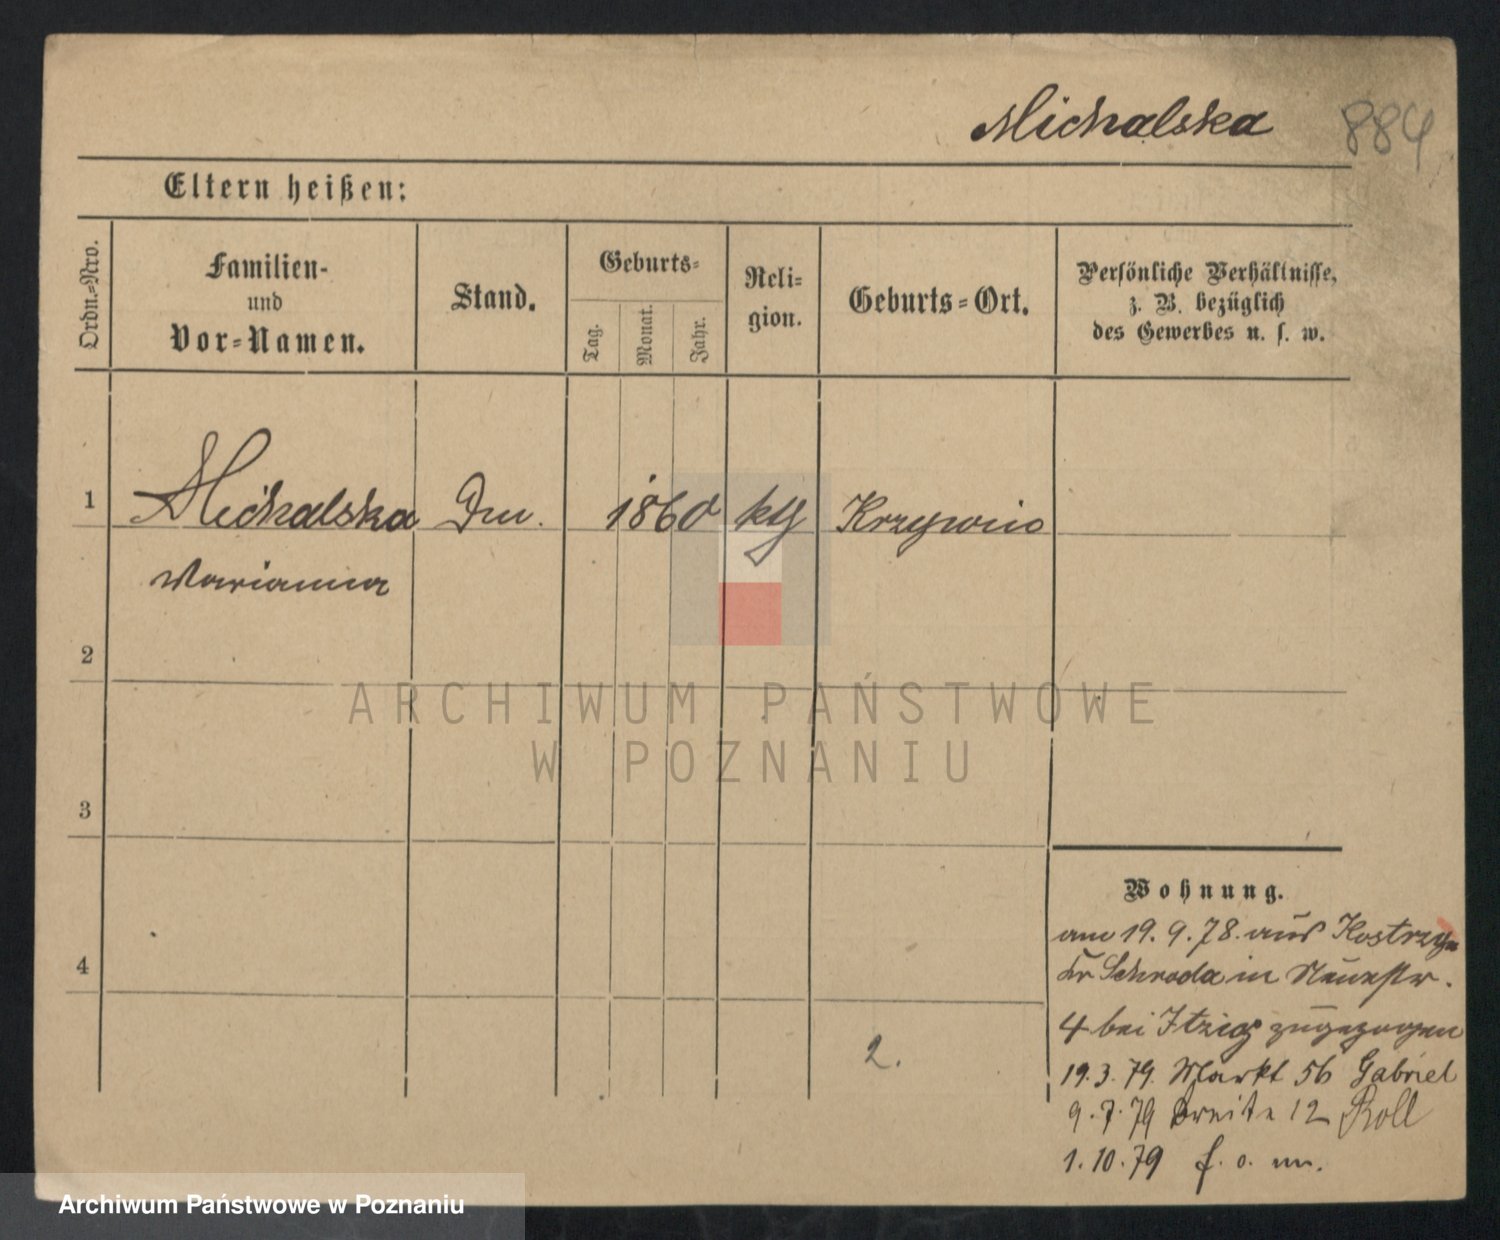 Michalska 884
Eltern heißen:
Ordn.-Nro.
Familien-
und
Vor-Namen.
Stand.
Geburts-
Tag.
Monat.
Jahr.
Reli-
gion.
Geburts-Ort.
Persönliche Verhältnisse,
z. B. bezüglich
des Gewerbes u. s. w.
1 Michalska 1860 kth Krzywin
Marianna
2
3
4
Wohnung.
am 19.9.78. aus Kostrzyn
Kr Schroda in Neuestr.
4 bei Itzig zugezogen
19.3.79. Markt 56 Gabriel
9.7.79 Breite 12 Roll
1.10.79
2.
ARCHIWUM PAŃSTWOWE
W POZNANIU
Archiwum Państwowe w Poznaniu